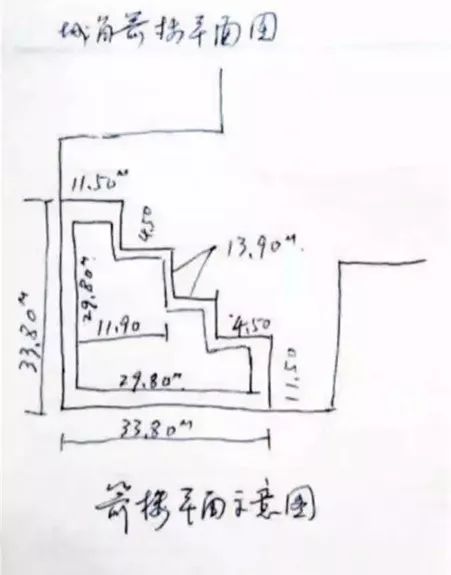 城角箭楼平面图
11.50ᴹ
4.50
13.90ᴹ
29.80ᴹ
33.80ᴹ
11.90
4.50
29.80ᴹ
11.50
33.80ᴹ
箭楼平面示意图